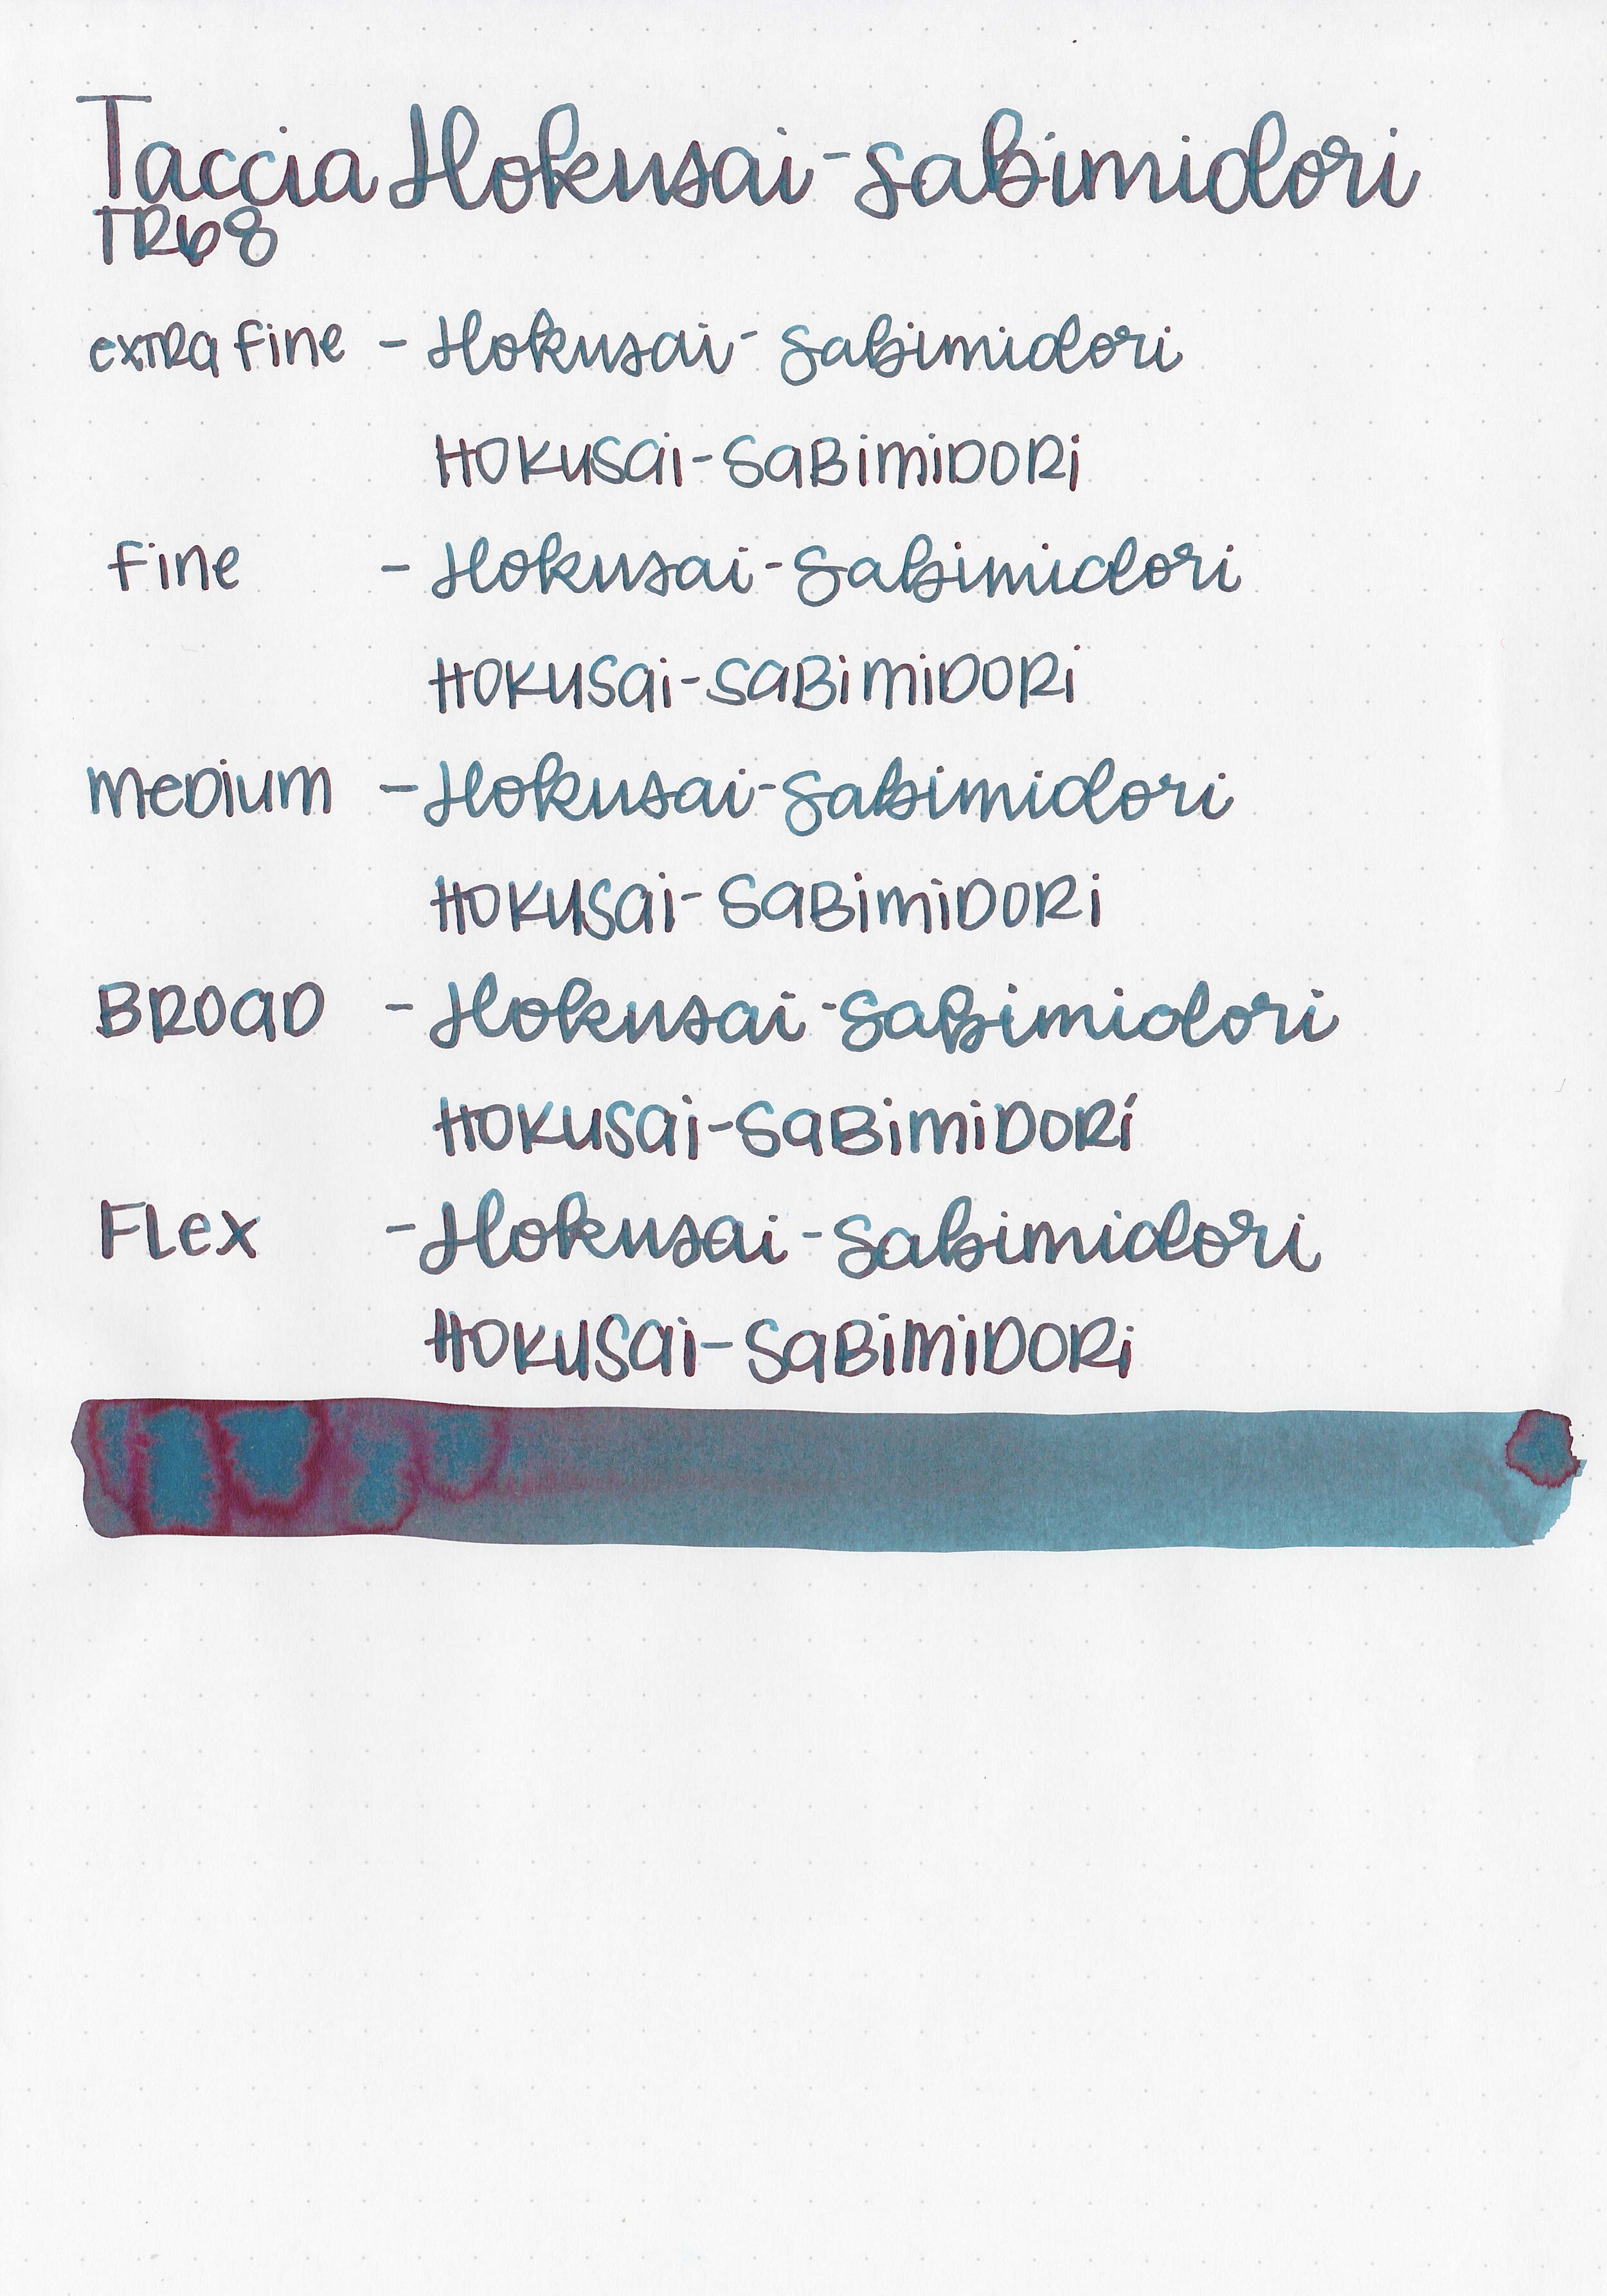 Taccia Hokusai-Sabimidori
TR68
extra fine - Hokusai-Sabimidori
HOKUSai-SaBimiDORi
fine - Hokusai-Sabimidori
HOKUSai-SaBimiDORi
meDium - Hokusai-Sabimidori
HOKUSai-SaBimiDORi
BROaD - Hokusai-Sabimidori
HOKUSai-SaBimiDORi
FLex - Hokusai-Sabimidori
HOKUSai-SaBimiDORi